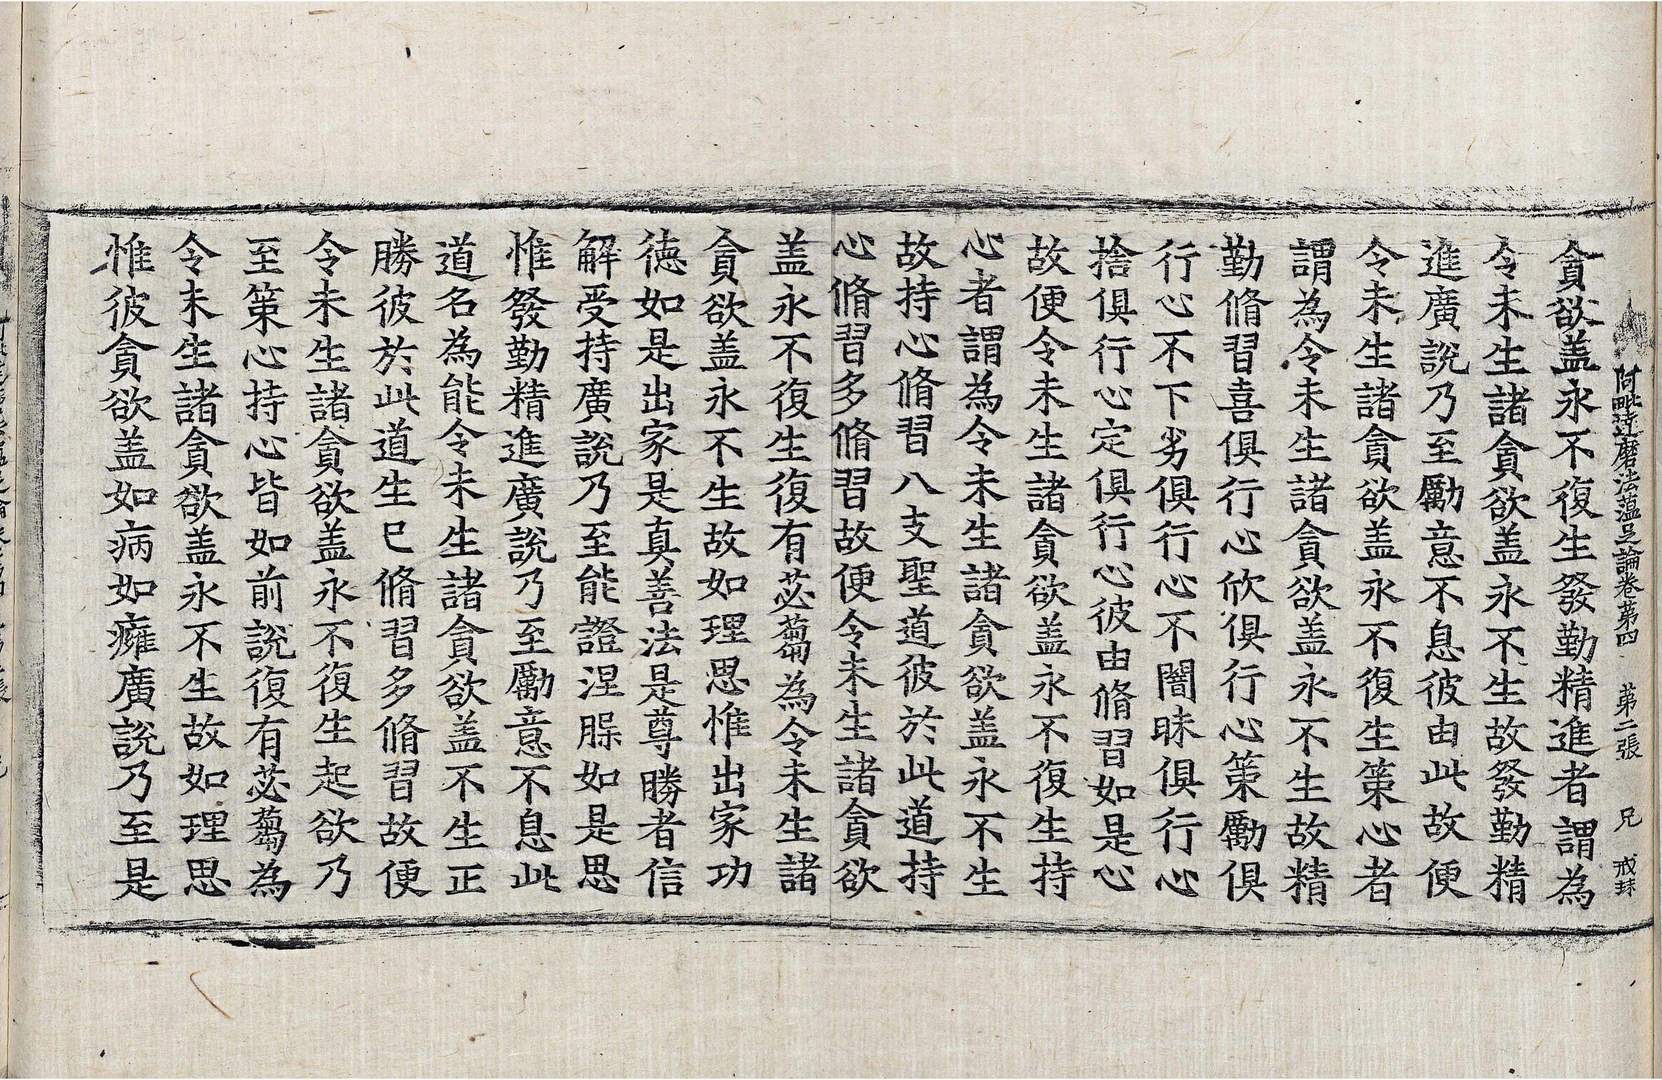 阿毗達磨法蕴足論卷第四 第二張 兄 戒珠
貪欲盖永不復生發勤精進者謂為
令未生諸貪欲盖永不生故發勤精
進廣說乃至勵意不息彼由此故便
令未生諸貪欲盖永不復生策心者
謂為令未生諸貪欲盖永不生故精
勤脩習喜俱行心欣俱行心策勵俱
行心不下劣俱行心不闇昧俱行心
捨俱行心定俱行心彼由脩習如是心
故便令未生諸貪欲盖永不復生持
心者謂為令未生諸貪欲盖永不生
故持心脩習八支聖道彼於此道持
心脩習多脩習故便令未生諸貪欲
盖永不復生復有苾蒭為令未生諸
貪欲盖永不生故如理思惟出家功
德如是出家是真善法是尊勝者信
解受持廣說乃至能證涅槃如是思
惟發勤精進廣說乃至勵意不息此
道名為能令未生諸貪欲盖不生正
勝彼於此道生已脩習多脩習故便
令未生諸貪欲盖永不復生起欲乃
至策心持心皆如前說復有苾蒭為
令未生諸貪欲盖永不生故如理思
惟彼貪欲盖如病如癰廣說乃至是